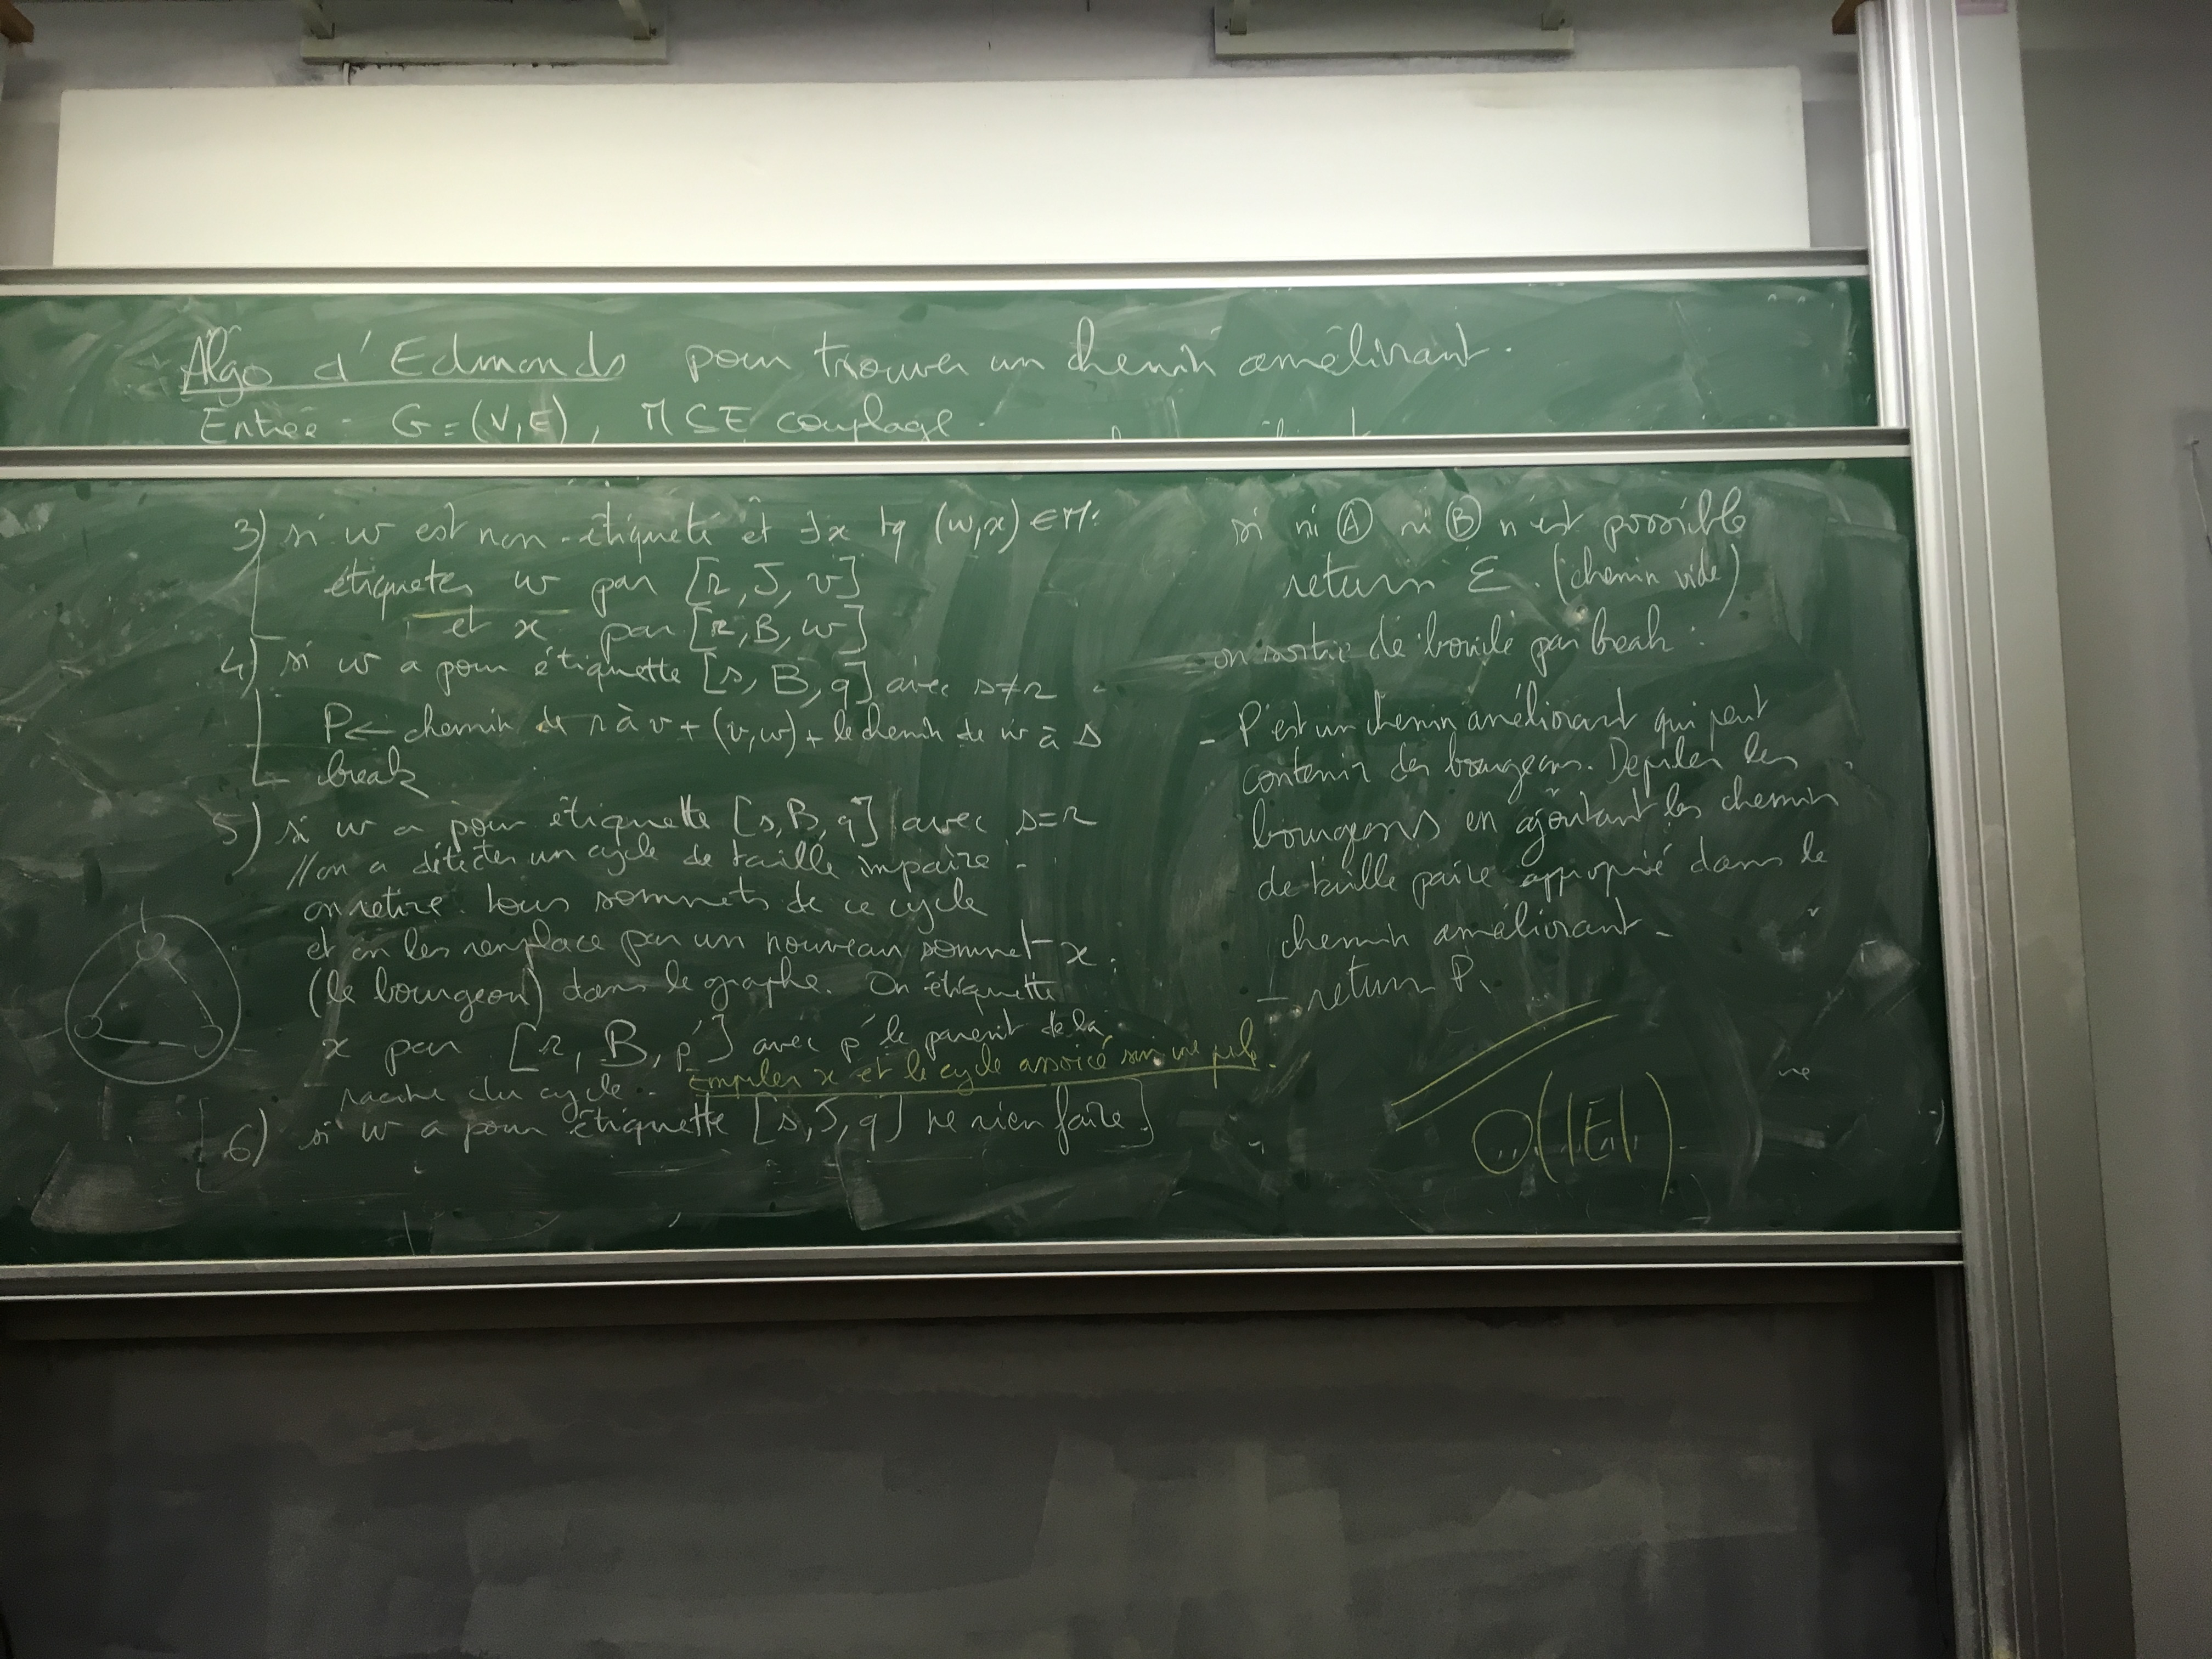 Algo d'Edmonds pour trouver un chemin améliorant.
Entrée: G=(V,E), M⊆E couplage.
3) si w est non-étiqueté et ∃x tq (w,x)∈M:
étiqueter w par [r, J, v]
et x par [r, B, w]
4) si w a pour étiquette [s, B, q] avec s≠r
P← chemin de r à v + (v,w) + le chemin de w à s
break
5) si w a pour étiquette [s, B, q] avec s=r
//on a détecter un cycle de taille impaire.
on retire tous sommets de ce cycle
et on les remplace par un nouveau sommet x.
(le bourgeon) dans le graphe. On étiquette
x par [r, B, p'] avec p' le parent de la
racine du cycle. Empiler x et le cycle associé sur une pile.
6) si w a pour étiquette [s, J, q] ne rien faire]
si ni Ⓐ ni Ⓑ n'est possible
return ε. (chemin vide)
on sortie de boucle par break:
- P est un chemin améliorant qui peut
contenir des bourgeons. Depiler les
bourgeons en ajoutant les chemin
de taille paire approprié dans le
chemin améliorant.
- return P.
O(|E|).